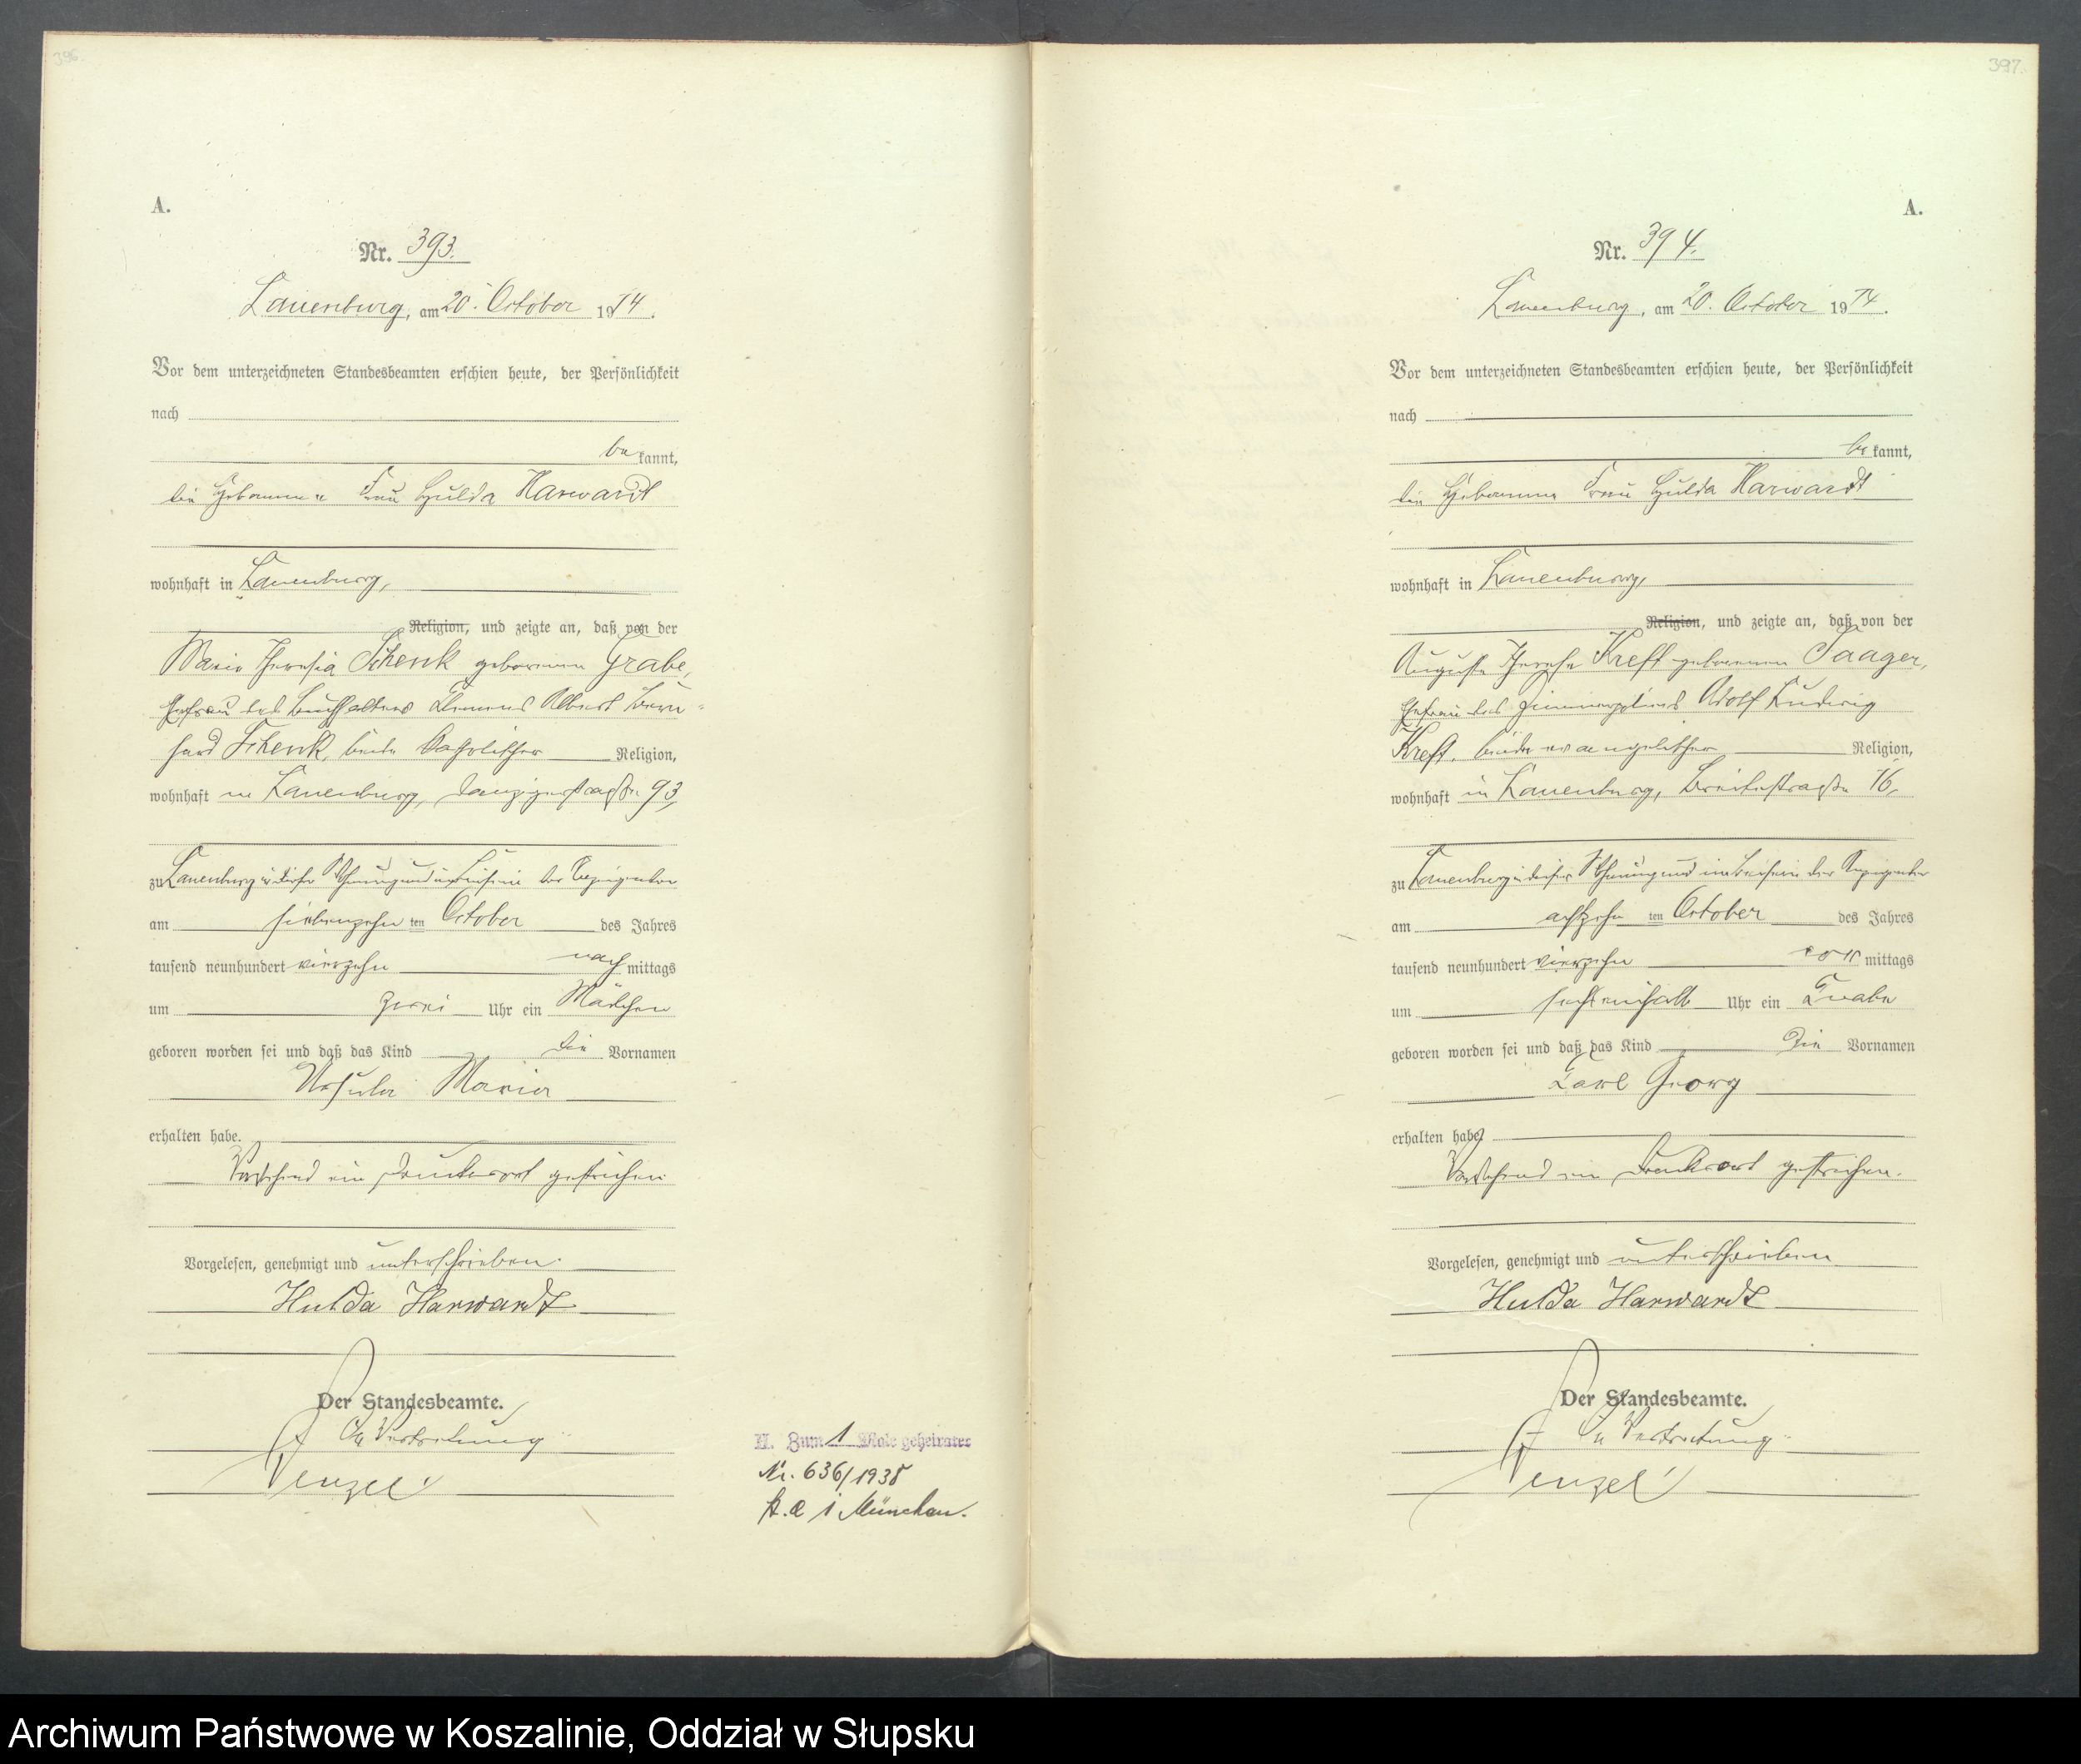 396.
A.
Nr. 393.
Lauenburg, am 20. October 1914.
Vor dem unterzeichneten Standesbeamten erschien heute, der Persönlichkeit
nach
bekannt,
die Hebamme Frau Hulda Harwardt
wohnhaft in Lauenburg,
Religion, und zeigte an, daß von der
Maria Theresia Schenk geborenen Grabe,
Ehefrau des Buchhalters Clemens Albert Bern-
hard Schenk, beide katholischer Religion,
wohnhaft in Lauenburg, Danzigerstraße 93,
zu Lauenburg in dieser Wohnung und im Beisein der Anzeigenden
am siebenzehnten October des Jahres
tausend neunhundert vierzehn nachmittags
um zwei Uhr ein Mädchen
geboren worden sei und daß das Kind die Vornamen
Ursula Maria
erhalten habe.
Vorstehend ein Druckwort gestrichen.
Vorgelesen, genehmigt und unterschrieben.
Hulda Harwardt
Der Standesbeamte.
In Vertretung
Wenzel
H. Zum 1 Male geheiratet
Nr. 636/1938
St. A I München.
397.
A.
Nr. 394.
Lauenburg, am 20. October 1914.
Vor dem unterzeichneten Standesbeamten erschien heute, der Persönlichkeit
nach
bekannt,
die Hebamme Frau Hulda Harwardt
wohnhaft in Lauenburg,
Religion, und zeigte an, daß von der
Auguste Therese Kreft geborenen Saager,
Ehefrau des Adolf Ludwig
Kreft, beide evangelischer Religion,
wohnhaft in Lauenburg, Breitestraße 16,
zu Lauenburg in dieser Wohnung und im Beisein der Anzeigenden
am achtzehnten October des Jahres
tausend neunhundert vierzehn vormittags
um sechseinhalb Uhr ein Knabe
geboren worden sei und daß das Kind die Vornamen
Karl Georg
erhalten habe
Vorstehend ein Druckwort gestrichen.
Vorgelesen, genehmigt und unterschrieben
Hulda Harwardt
Der Standesbeamte.
In Vertretung
Wenzel
Archiwum Państwowe w Koszalinie, Oddział w Słupsku